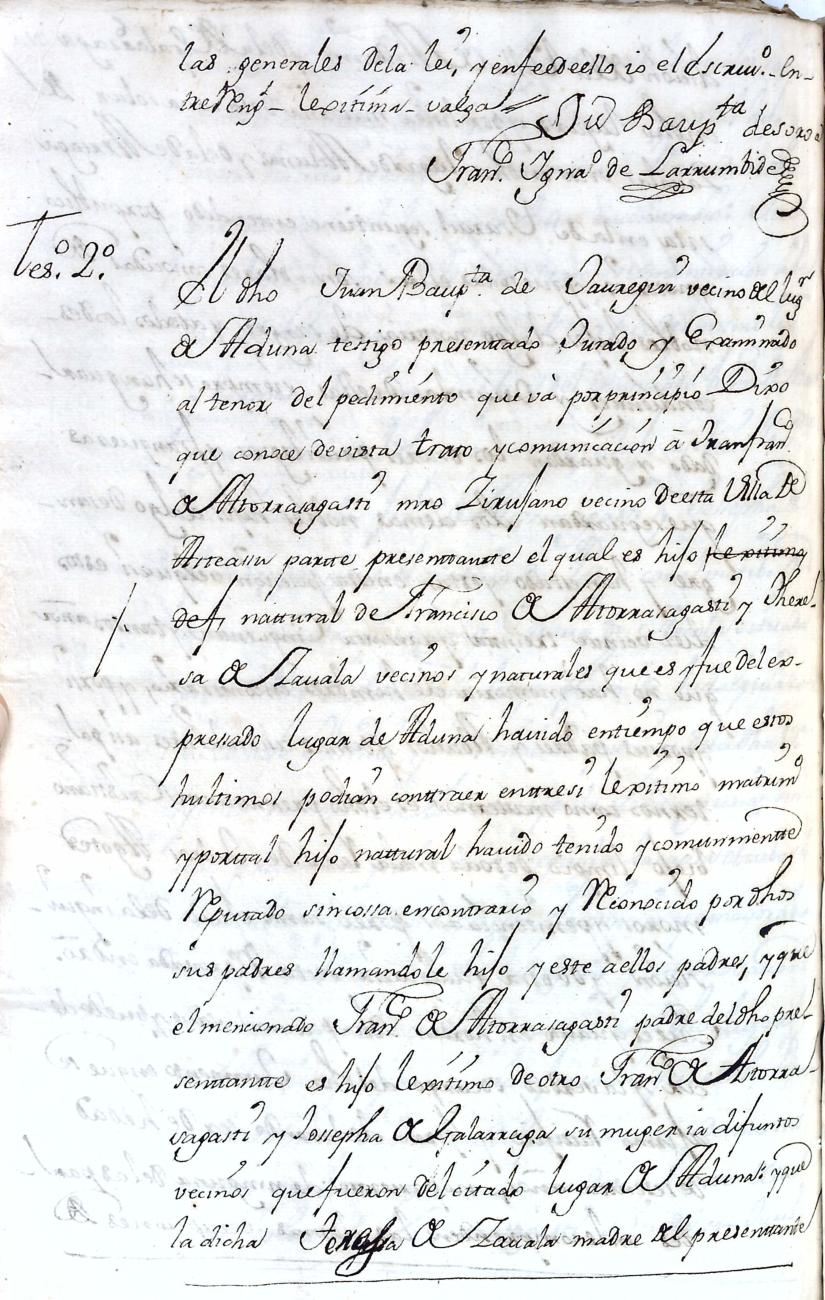 las generales dela lei, y enfeedeello io el Escriuº. En-
treRengˢ - lexitima - valga
Juº Baupᵗᵃ desoroa
Franᶜᵒ Ignaº de Larrumbide
Tesº. 2º. El dho Juan Baupᵗᵃ. de Sauregui vecino del lugʳ
de Aduna testigo presenttado Jurado y Examinado
al tenor del pedimiento que và por principio Dixo
que conoce de vista trato y comunicacion â Juan franᶜᵒ
de Attorrasagasti mro Zirujano vecino de esta Villa de
Asteasu partte presenttantte el qual es hijo lexitimo
de fr nattural de Francisco de Attorrasagasti y There-
sa de Zauala vecinos y naturales que es y fue del ex-
pressado lugar de Aduna hauido entiempo que estos
hultimos podian conttraer enttresi lexitimo matrimº
y porttal hijo nattural hauido tenido y comunmentte
Reputado sincossa encontrario y Reconocido por dhos
sus padres llamandole hijo y este aellos padres, y que
el mencionado Franᶜᵒ de Attorrasagasti padre del dho pre-
senttantte es hijo lexitimo de otro Franᶜᵒ de Atorra-
sagasti y Josepha de Galarraga su muger ia difuntos
vecinos que fueron del citado lugar de Aduna: y que
la dicha Teressa de Zauala madre del presenttante